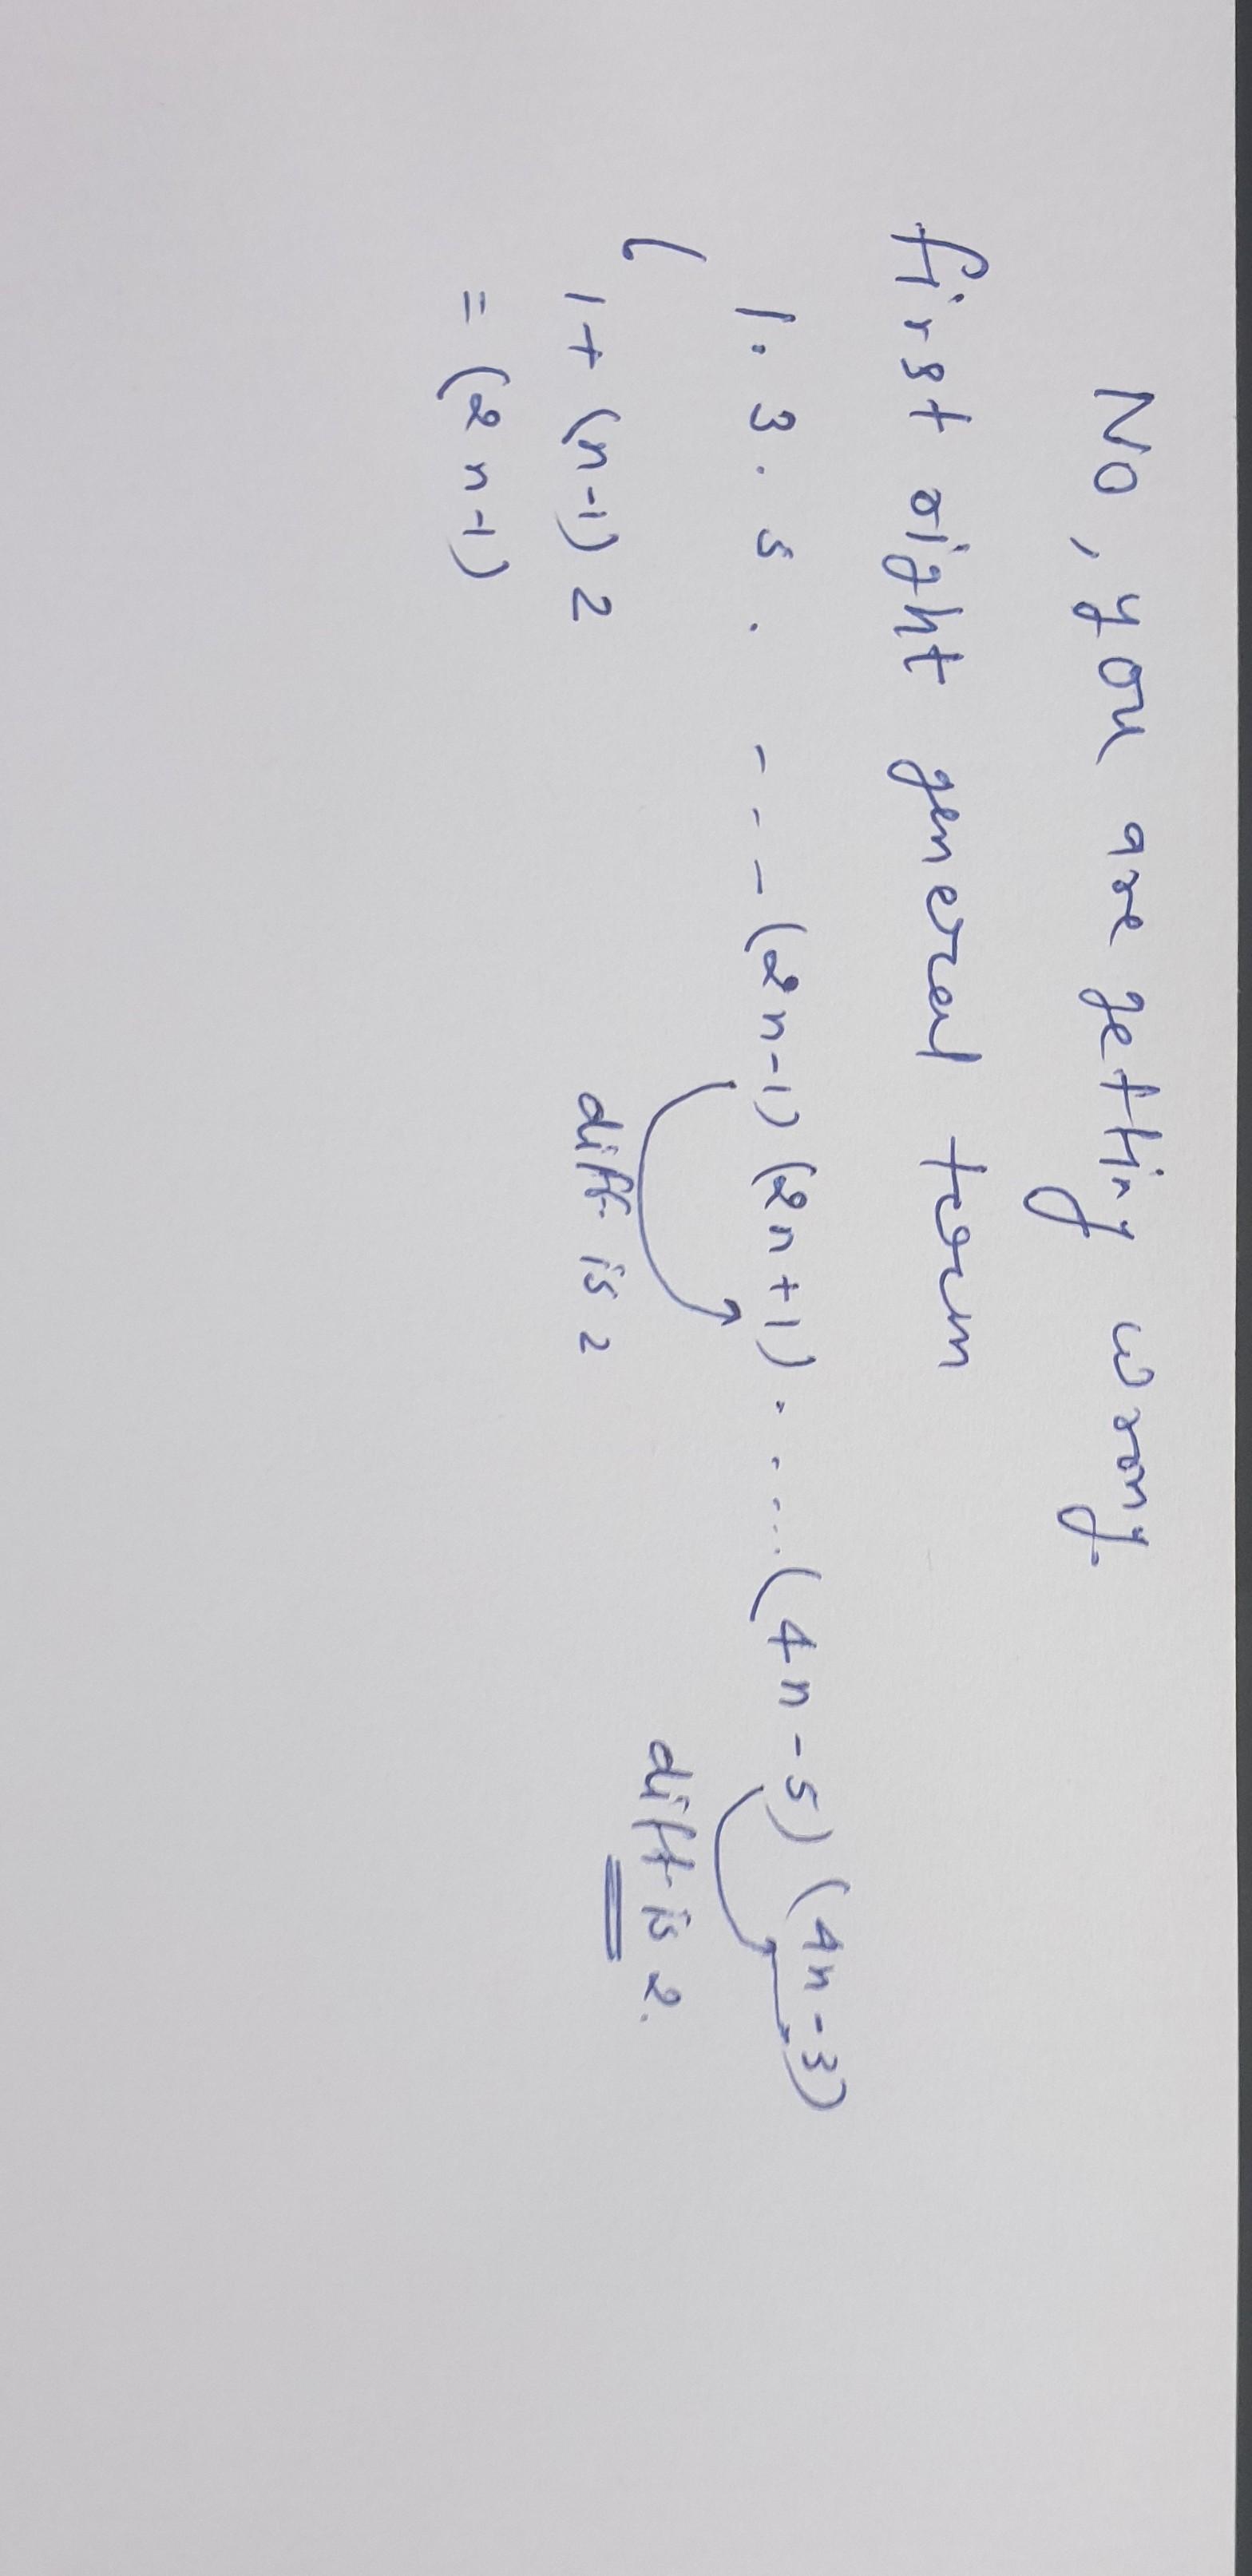 No, you are getting wrong.
first right general term
1. 3. 5. - - - (2n-1) (2n+1) . . . . . (4n-5) (4n-3)
diff. is 2
diff. is 2.
1 + (n-1) 2
= (2n-1)